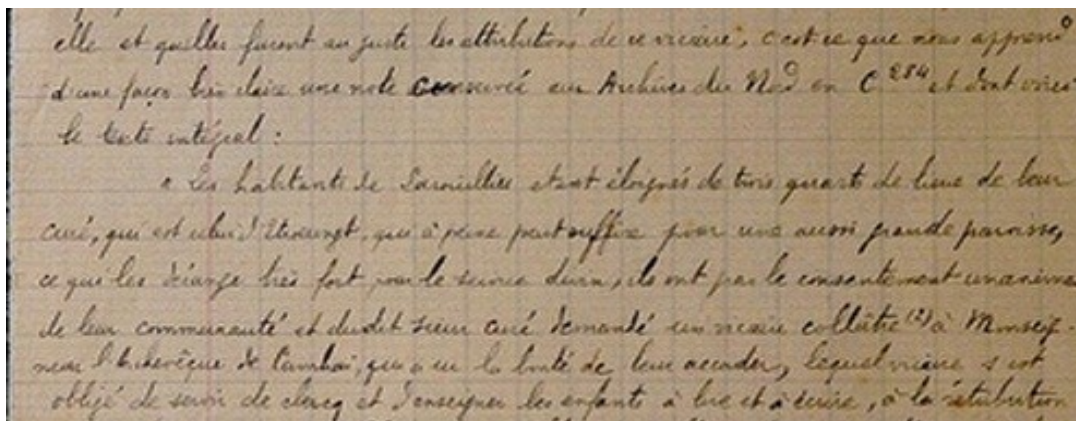 elle et quelles furent au juste les attributions de ce vicaire, c'est ce que nous apprend
d'une façon très claire une note conservée aux Archives du Nord en C 284 et dont voici
le texte intégral :
« Les habitants de étant éloignés de trois quart de lieue de leur
curé, qui est celui d'Etroeungt, qui à peine peut suffire pour une aussi grande paroisse,
ce qui les dérange très fort pour le service divin, ils ont par le consentement unanime
de leur communauté et dudit sieur curé demandé un vicaire collatre (2) à Monseig-
neur l'Archevêque de Cambrai, qui a eu la bonté de leur accorder, lequel vicaire s'est
obligé de servir de clercq et d'enseigner les enfants à lire et à écrire, à la rétribution